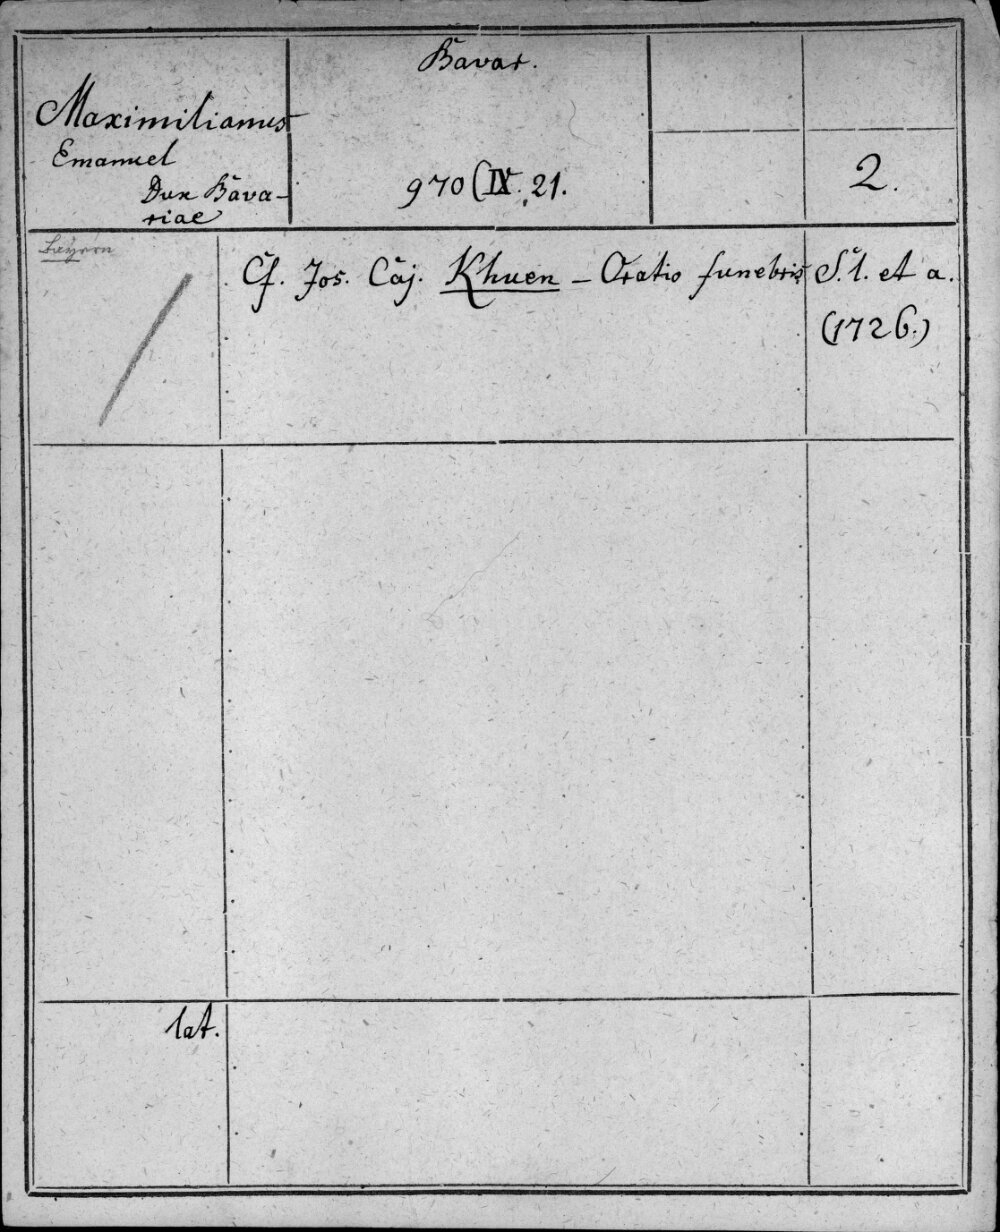 Bavar.
Maximilianus
Emanuel
Dux Bava-
riae
970 (IX. 21.
2.
Bayern
Cf. Jos. Caj. Khuen – Oratio funebris
S. l. et a.
(1726.)
lat.